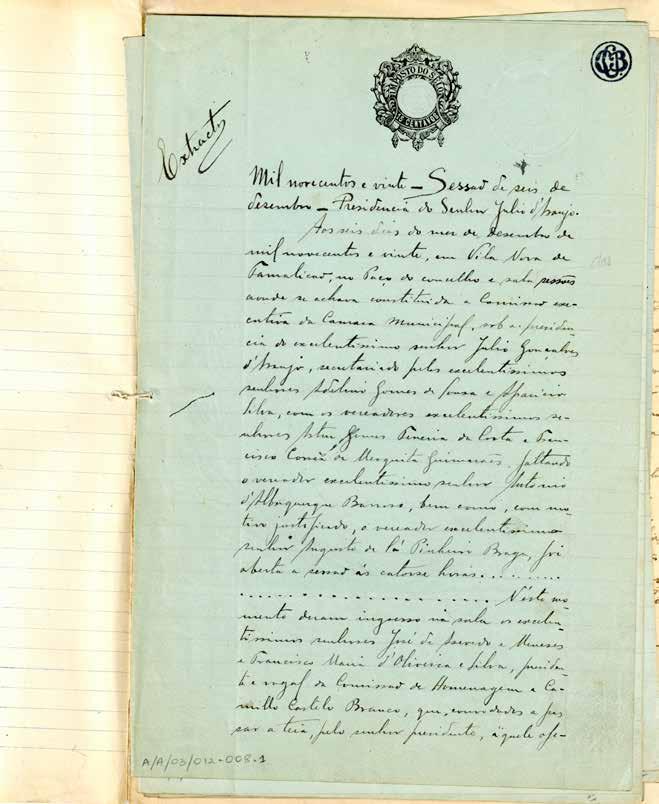 IMPOSTO DO SELO
CENTAVOS
CCB
Extracto
Mil novecentos e vinte — Sessão de seis de
desembro — Presidencia do Senhor Julio d'Araujo.
Aos seis dias do mez de desembro de
mil novecentos e vinte, em Vila Nova de
Famalicão, no Paço do concelho e sala sessões
aonde se achava constituida a Comissão exe-
cutiva da Camara Municipal, sob a presiden-
cia do excelentissimo senhor Julio Gonçalves
d'Araujo, secretariado pelos excelentissimos
senhores Adelino Gomes de Sousa e Aparicio
Silva, com os vereadores excelentissimos se-
nhores Artur Gomes Pereira da Costa e Fran-
cisco Corrêa de Mesquita Guimarães, faltando
o vereador excelentissimo senhor Antonio
d'Albuquerque Barroso, bem como, com mo-
tivo justificado, o vereador excelentissimo
senhor Augusto de Sá Pinheiro Braga, foi
aberta a sessão ás catorse horas........
.................... Néste mo-
mento deram ingresso na sala os excelen-
tissimos senhores José de Azevedo e Meneses
e Francisco Maria d'Oliveira e Silva, presiden-
te e vogal da Comissão de Homenagem a Ca-
millo Castelo Branco, que, convidados a pas-
sar a teia, pelo senhor presidente, áquele ofe-
A/A/03/012-008-1